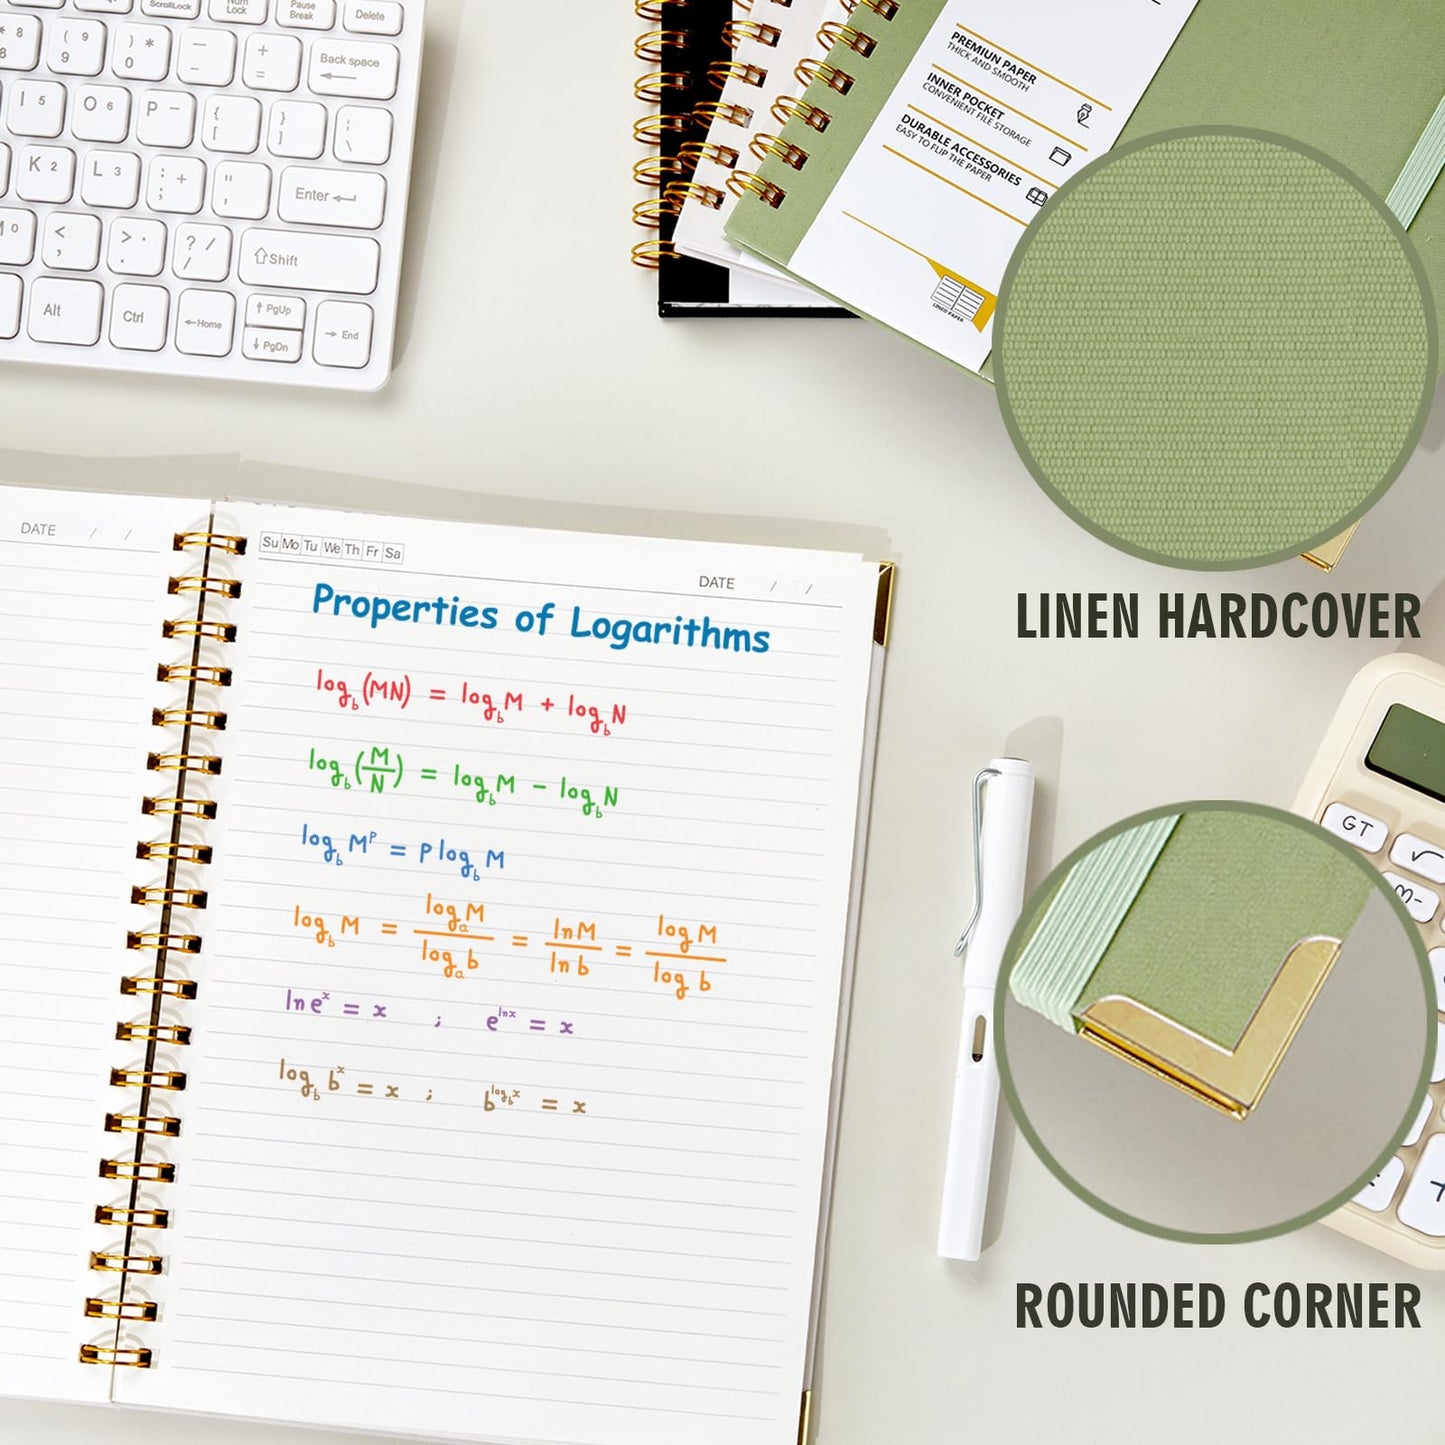 ScrollLock
Num Lock
Pause Break
Delete
* 8 8
( 9 9
) * 0
— -
+ =
Back space
I 5
O 6
P -
{ [
} ]
K 2
L 3
: + ;
" '
Enter
M 0
< ,
> . .
? / /
Shift
Alt
Ctrl
Home
PgUp
PgDn
End
PREMIUN PAPER
THICK AND SMOOTH
INNER POCKET
CONVENIENT FILE STORAGE
DURABLE ACCESSORIES
EASY TO FLIP THE PAPER
LINED PAPER
LINEN HARDCOVER
DATE / /
Su Mo Tu We Th Fr Sa
DATE / /
Properties of Logarithms
log_b(MN) = log_b M + log_b N
log_b(M/N) = log_b M - log_b N
log_b M^P = P log_b M
log_b M = log_a M / log_a b = ln M / ln b = log M / log b
ln e^x = x ; e^ln x = x
log_b b^x = x ; b^log_b x = x
GT
√
M-
ROUNDED CORNER